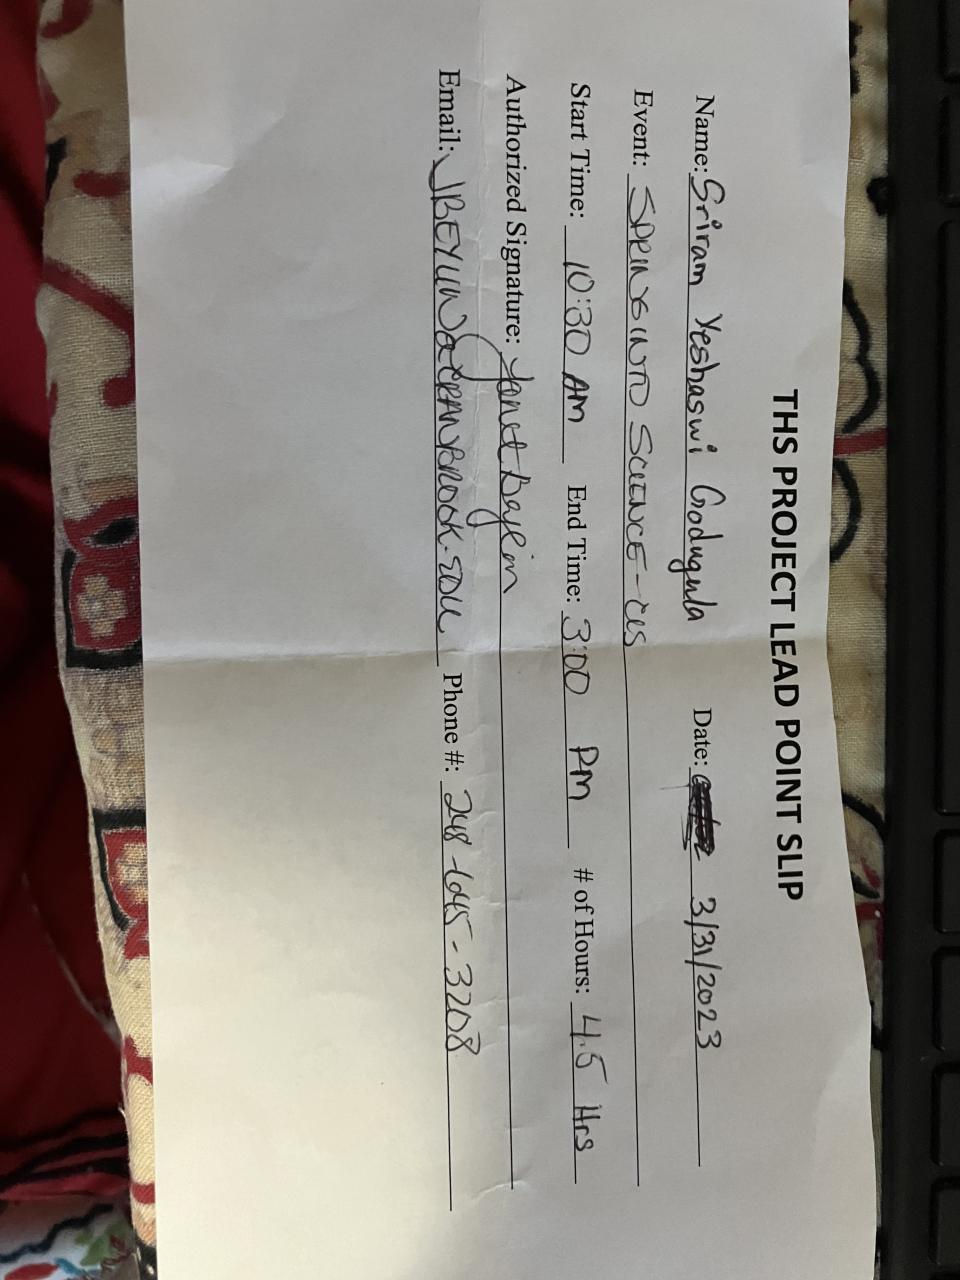 THS PROJECT LEAD POINT SLIP
Name: Sriram Yeshaswi Godugula Date: 3/31/2023
Event: SPRING INTO SCIENCE - CIS
Start Time: 10:30 AM End Time: 3:00 PM # of Hours: 4.5 Hrs
Authorized Signature: Janet
Email: Phone #: 248-645-3208